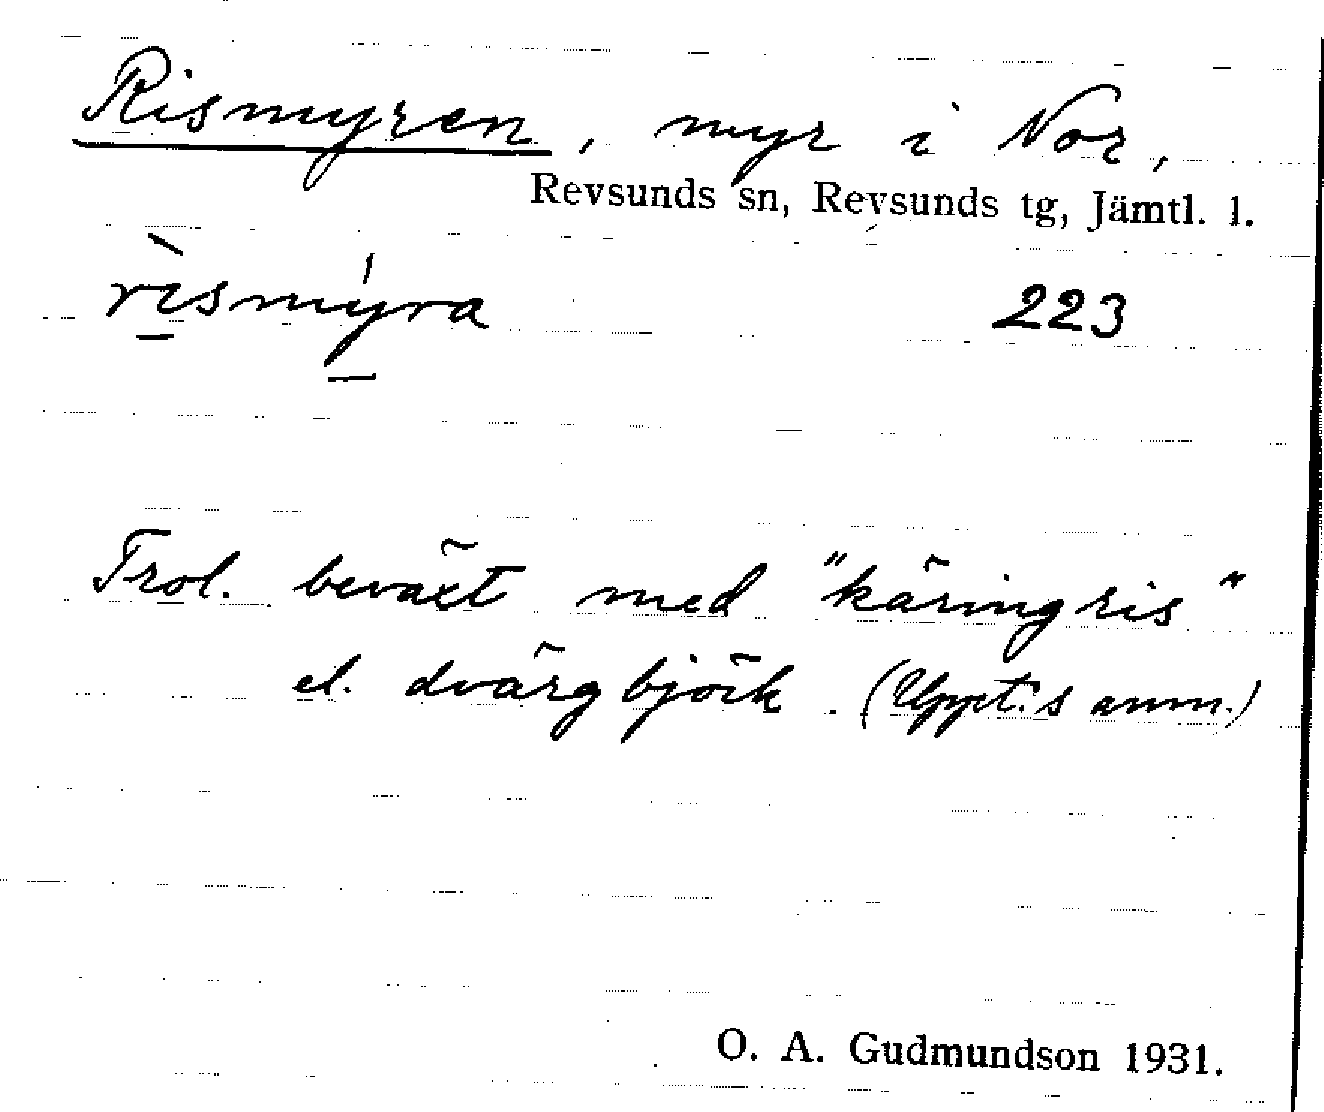 Rismyren, myr i Nor,
Revsunds sn, Revsunds tg, Jämtl. l.
rìsmýra 223
Trol. beväxt med "käringris"
el. dvärgbjörk. (Uppt:s anm.)
O. A. Gudmundson 1931.